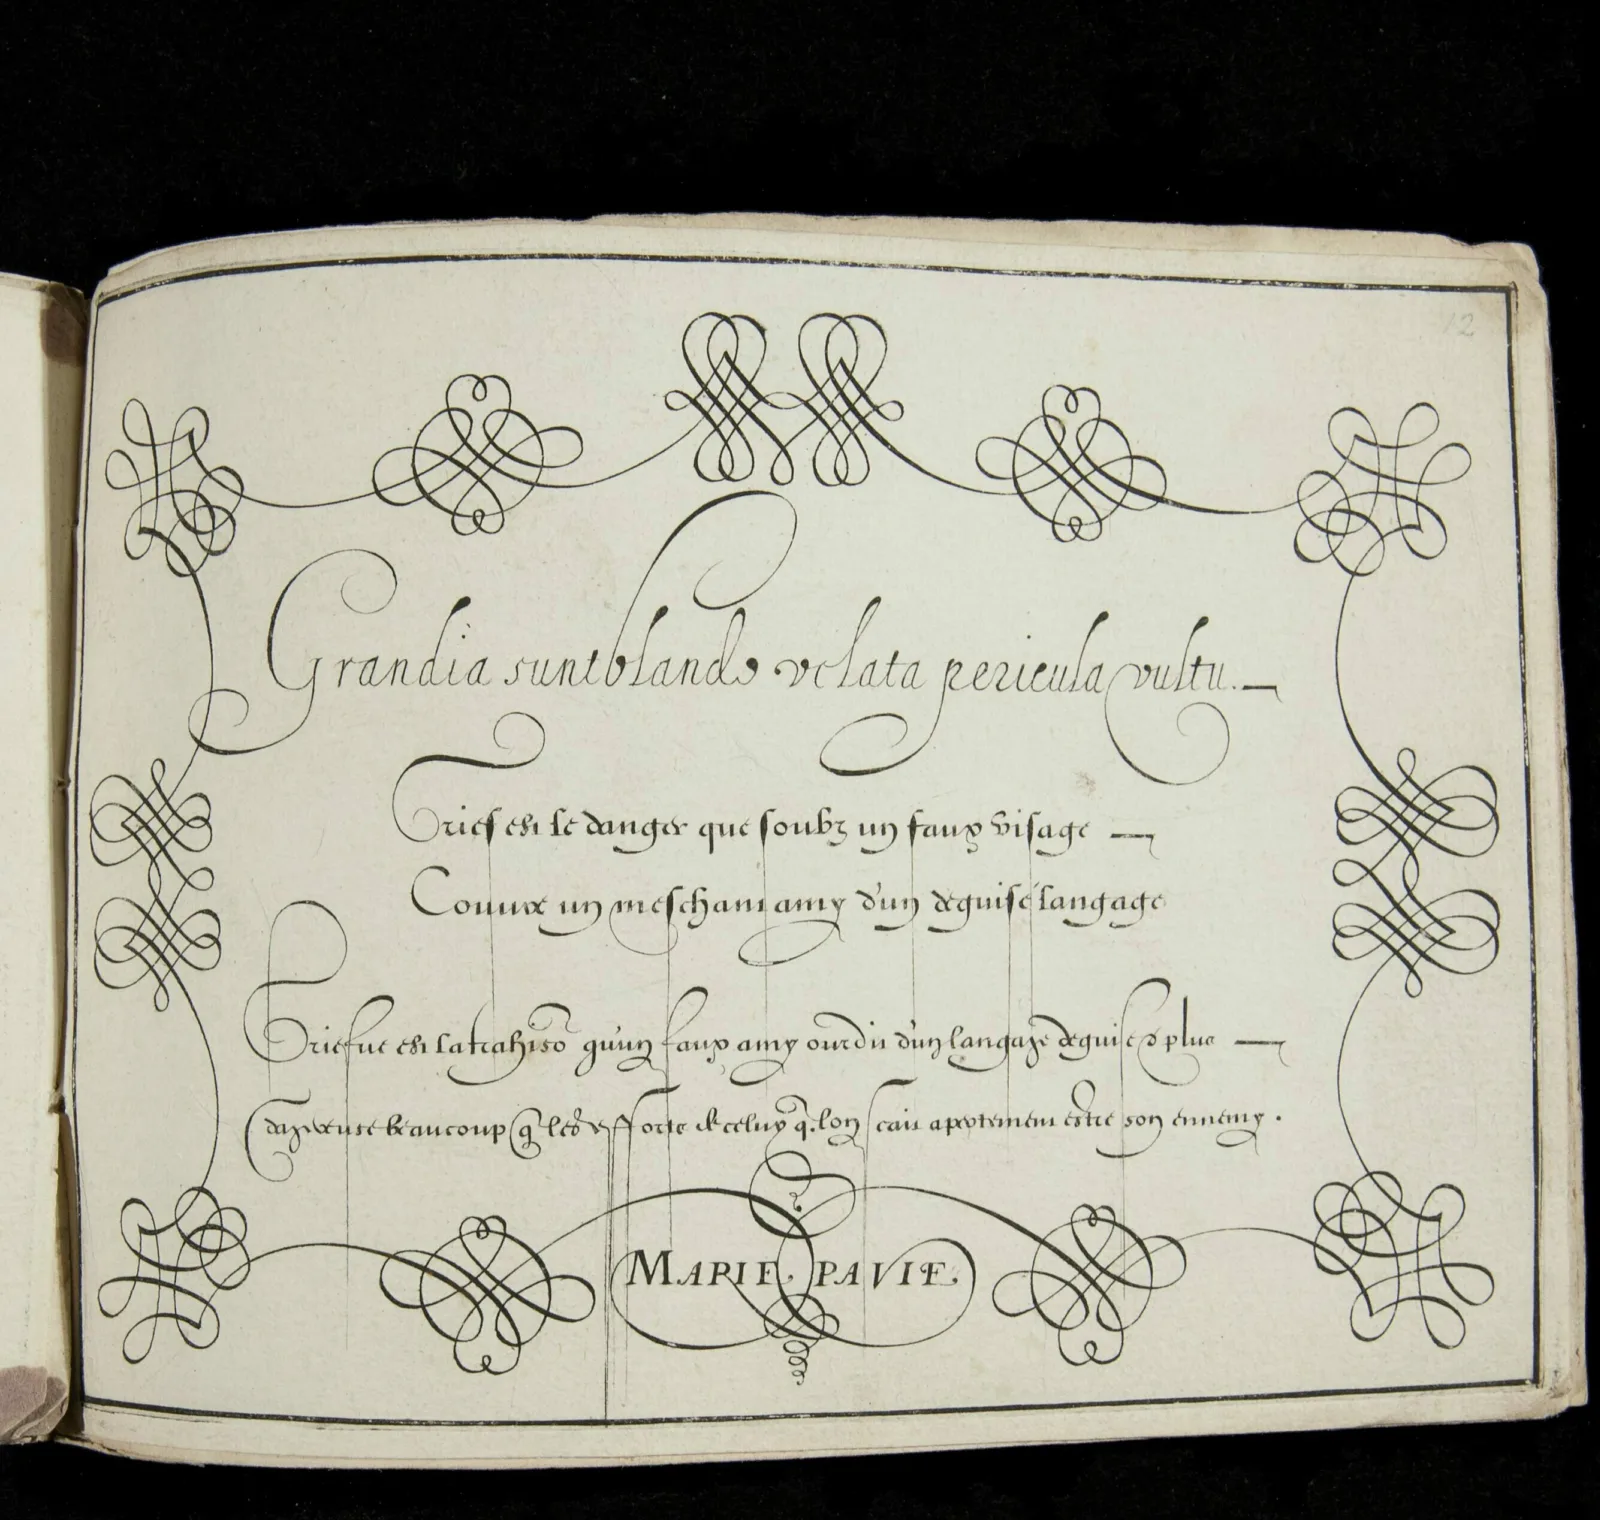 12
Grandia sunt blando velata pericula vultu.
Grief est le danger que soubz un faux visage
Couure un meschant amy d'un deguisé langage
Griefue est la trahisõ qu'un faux amy ourdit d'un langage deguise & plus
beaucoup forte de celuy q. lon scait apertement estre son ennemy.
MARIE PAVIE.